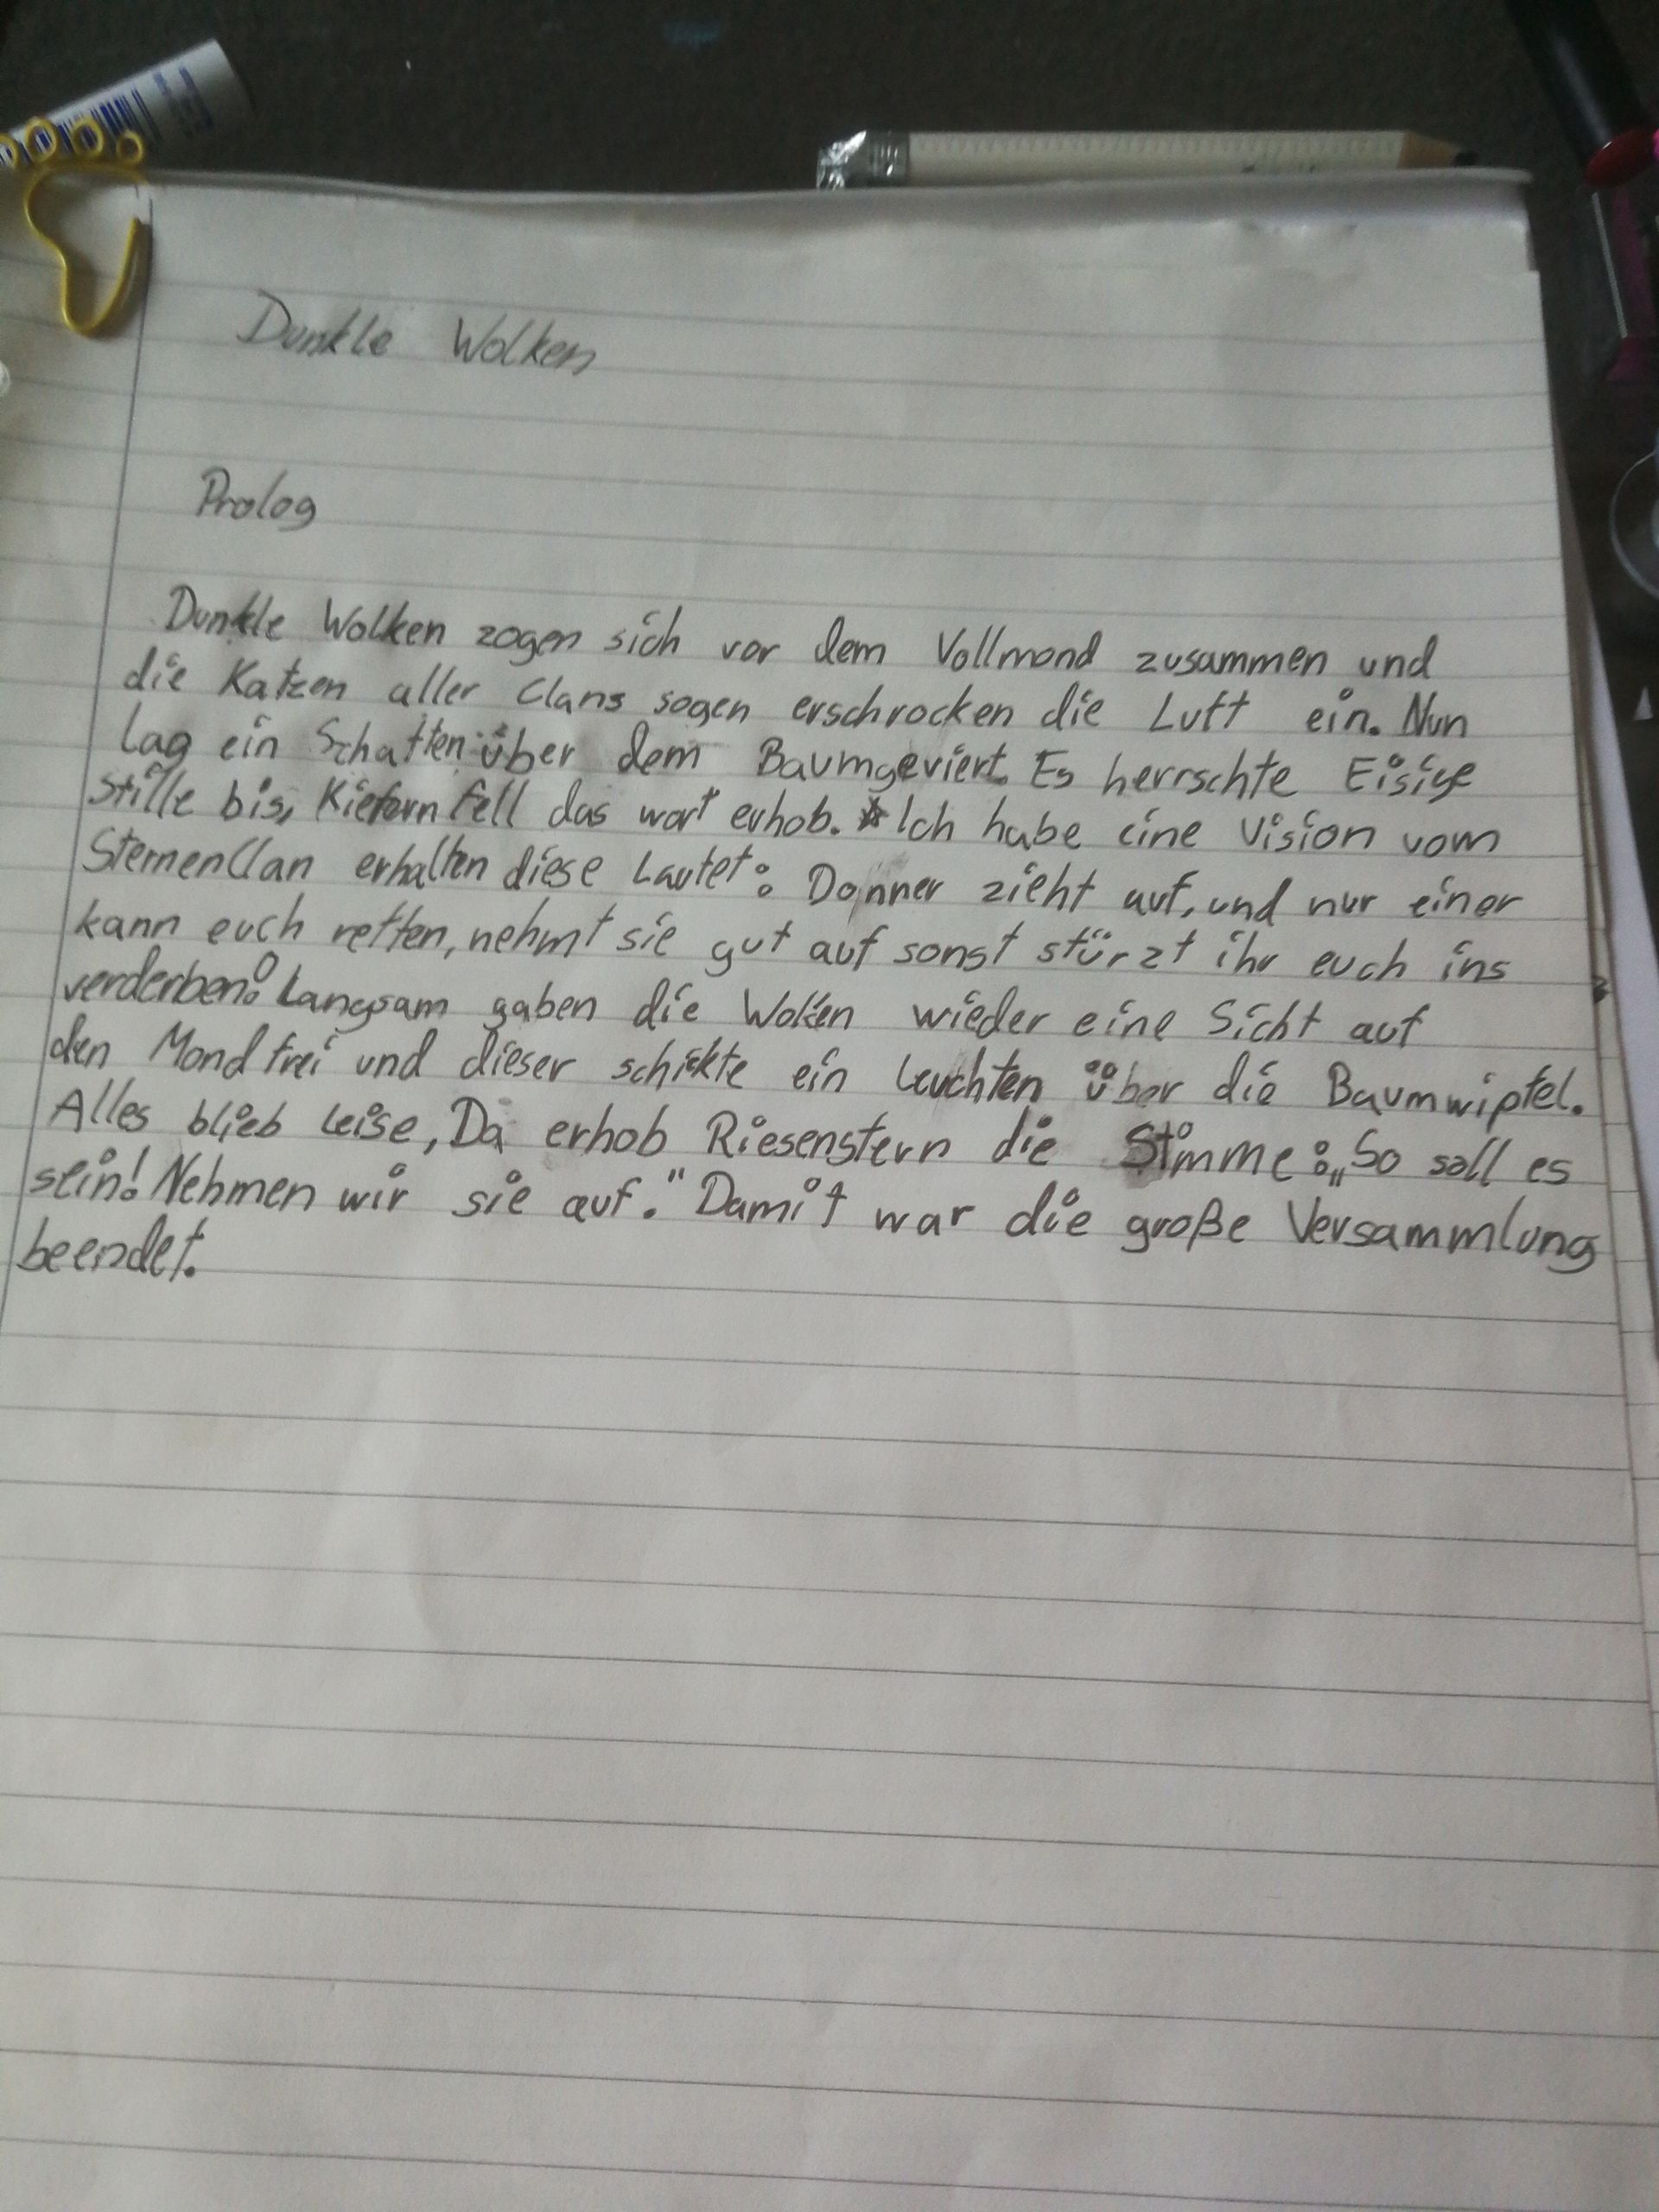 Dunkle Wolken
Prolog
Dunkle Wolken zogen sich vor dem Vollmond zusammen und
die Katzen aller Clans sogen erschrocken die Luft ein. Nun
lag ein Schatten über dem Baumgeviert. Es herrschte Eisige
stille bis, Kiefernfell das wort erhob. Ich habe eine Vision vom
SternenClan erhalten diese Lautet: Donner zieht auf, und nur einer
kann euch retten, nehmt sie gut auf sonst stürzt ihr euch ins
verderben! Langsam gaben die Wolken wieder eine Sicht auf
den Mond frei und dieser schickte ein leuchten über die Baumwipfel.
Alles blieb leise, Da erhob Riesenstern die Stimme: „So soll es
sein! Nehmen wir sie auf." Damit war die große Versammlung
beendet.